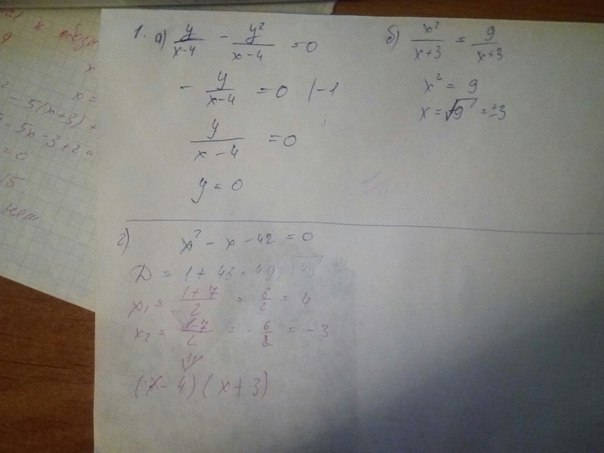 1. а) y/(x-4) - y²/(x-4) = 0
- y/(x-4) = 0 |-1
y/(x-4) = 0
y = 0
б) x²/(x+3) = 9/(x+3)
x² = 9
x = √9 = ±3
г) x² - x - 42 = 0
D = 1 + 48 = 49
x₁ = (1+7)/2 = 8/2 = 4
x₂ = (1-7)/2 = -6/2 = -3
(x-4)(x+3)
x
x =
- 5(x+3) +
- 5x - 3 + 2 =
= 0
15
нет